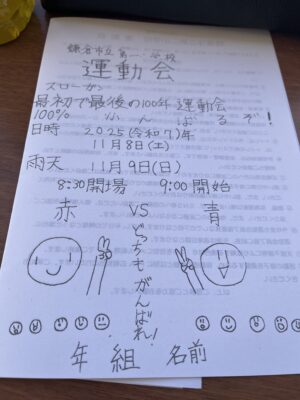 鎌倉市立第一小学校
運動会
スローガン
最初で最後の100年運動会
100% ふんばるぞ!
日時 2025(令和7)年
11月8日(土)
雨天 11月9日(日)
8:30開場 9:00開始
赤 VS 青
どっちもがんばれ!
年 組 名前